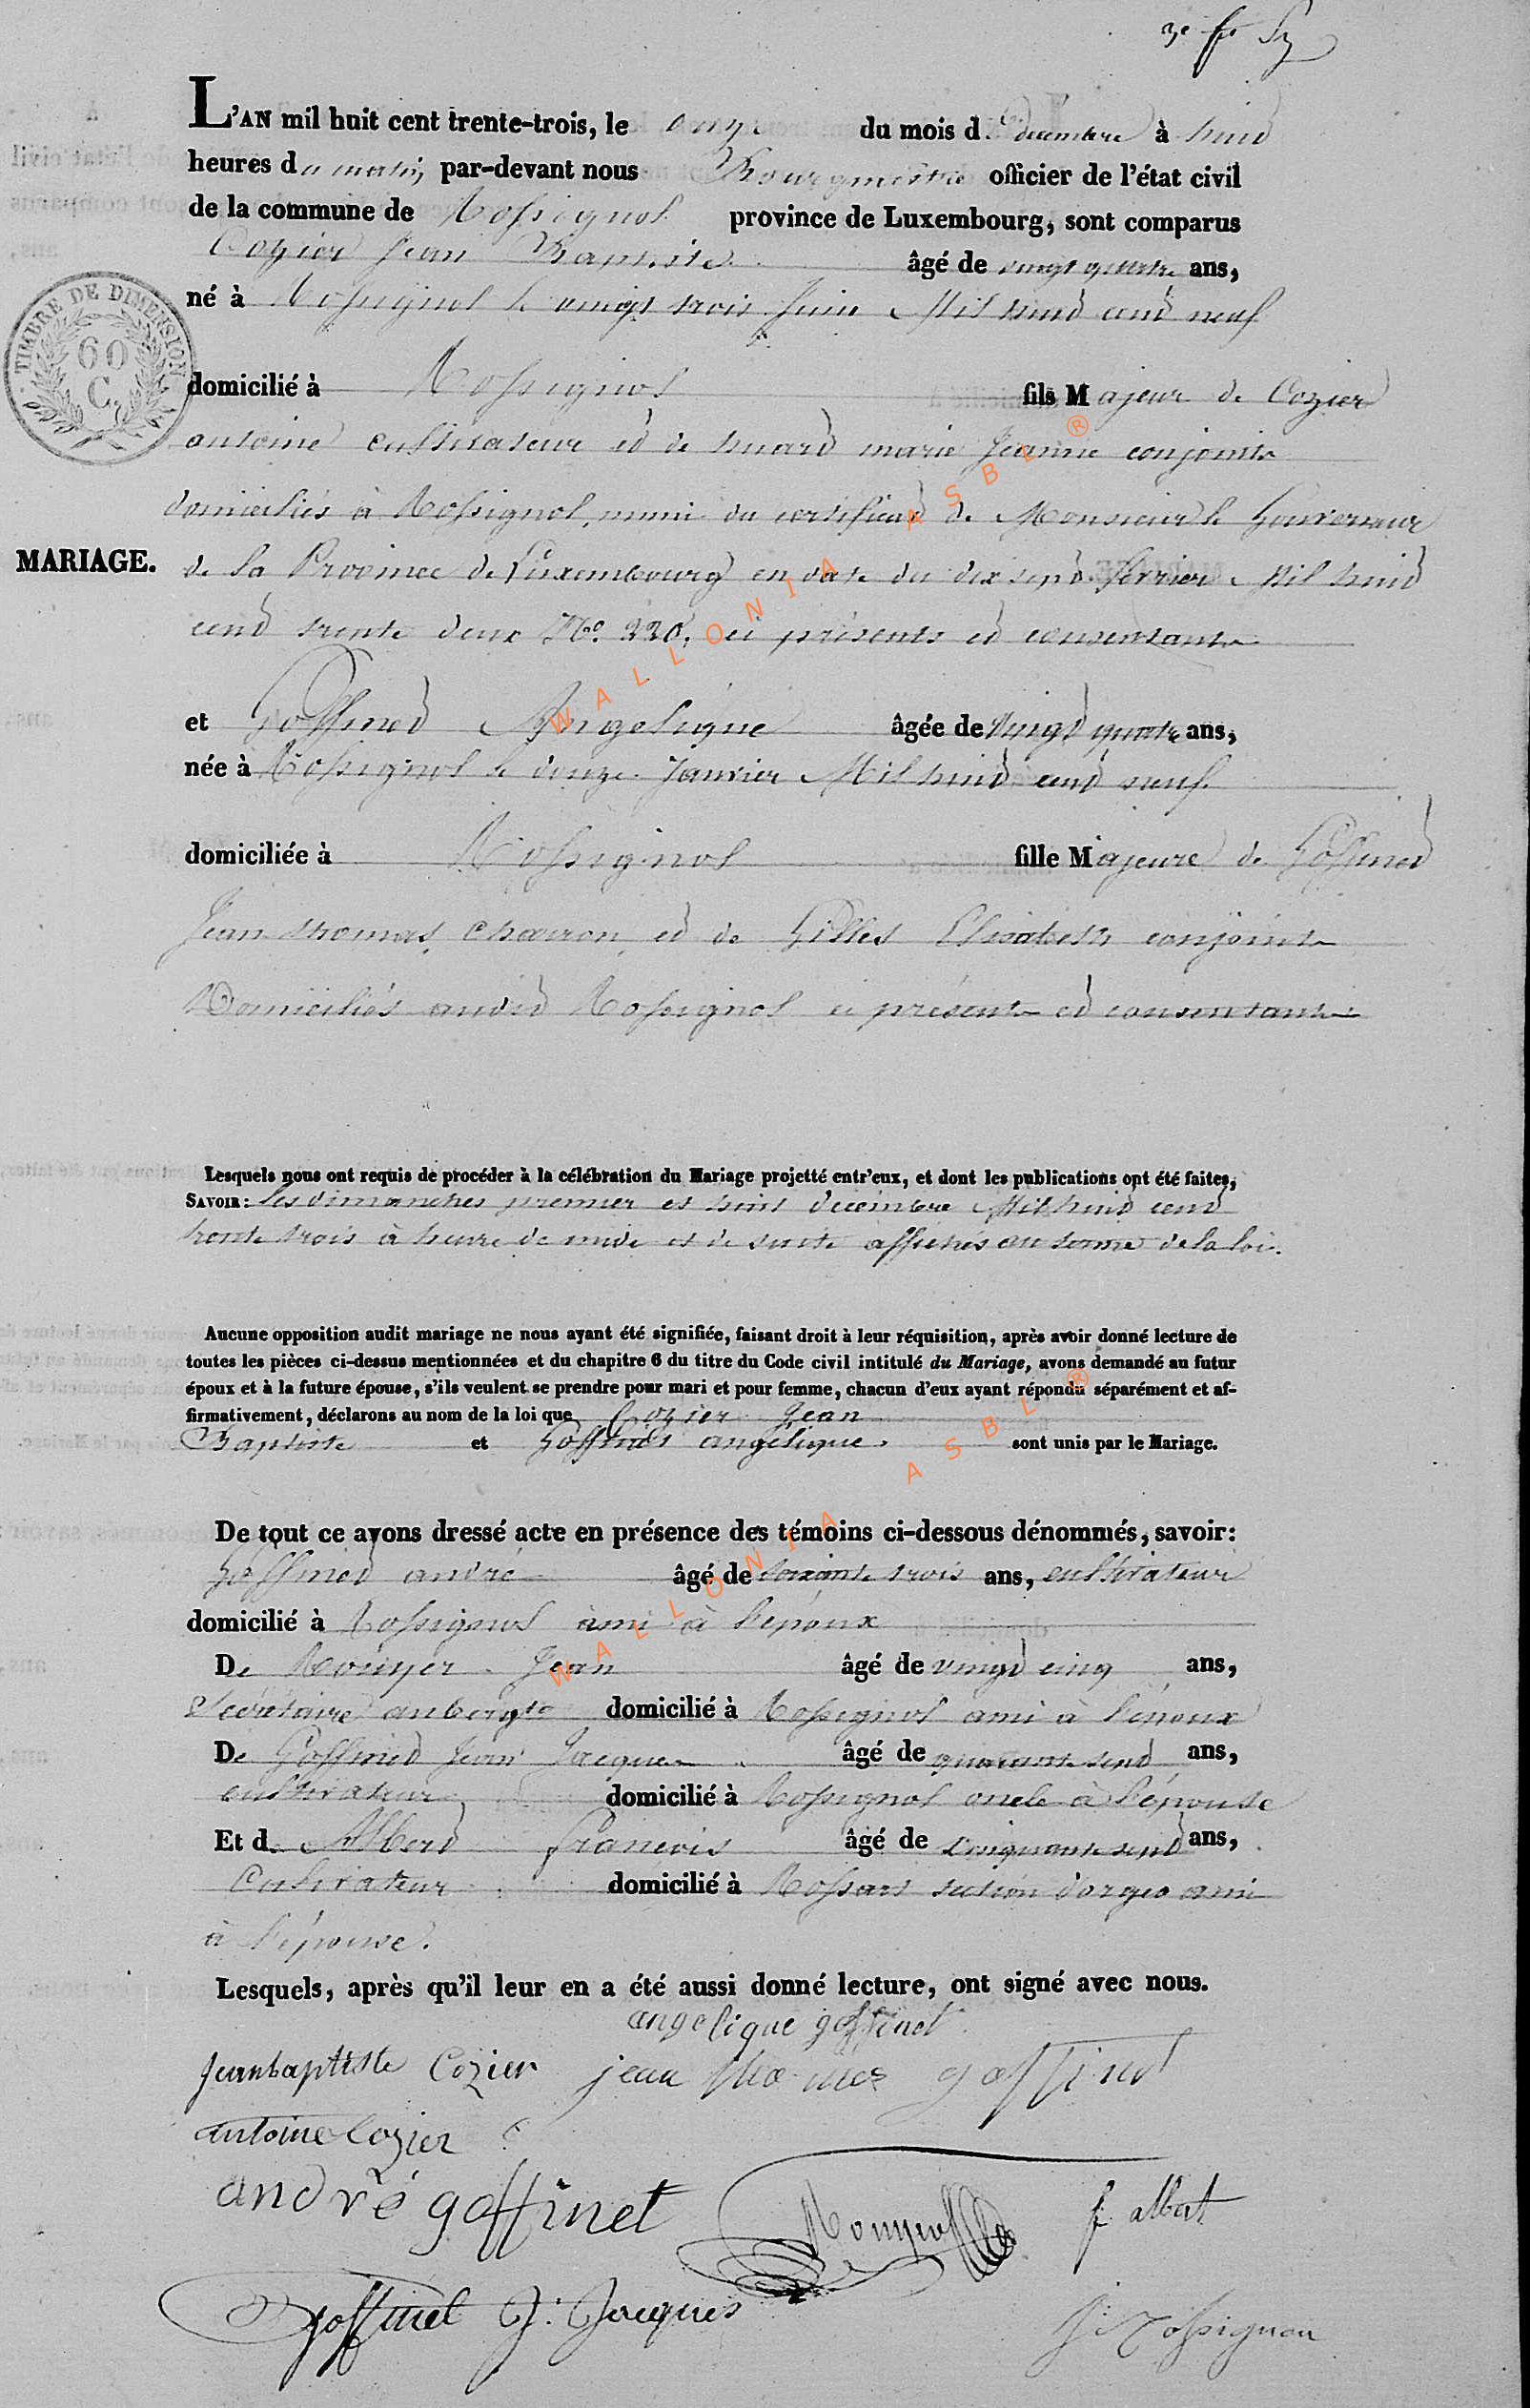 L'AN mil huit cent trente-trois, le onze du mois de décembre à huit
heures du matin par-devant nous Bourgmestre officier de l'état civil
de la commune de Rossignol province de Luxembourg, sont comparus
Cozier Jean Baptiste âgé de vingt quatre ans,
né à Rossignol le vingt trois Juin Mil huit cent neuf
TIMBRE DE DIMENSION
60
C.
domicilié à Rossignol fils Majeur de Cozier
antoine cultivateur et de huart marie Jeanne conjoints
domiciliés à Rossignol, muni du certificat de Monsieur le Gouverneur
MARIAGE. de la Province de Luxembourg en date du dix sept fevrier Mil huit
cent trente deux No. 220, ici présents et consentants
et Goffinet Angelique âgée de Vingt quatre ans,
née à Rossignol le douze Janvier Mil huit cent neuf
domiciliée à Rossignol fille Majeure de Goffinet
Jean thomas charron et de Gilles Elisabeth conjoints
Domiciliés audit Rossignol ici présents et consentants
Lesquels nous ont requis de procéder à la célébration du Mariage projetté entr'eux, et dont les publications ont été faites,
SAVOIR: les dimanches premier et huit décembre Mil huit cent
trente trois à heure de midi et de suite affichés au terme de la loi.
Aucune opposition audit mariage ne nous ayant été signifiée, faisant droit à leur réquisition, après avoir donné lecture de
toutes les pièces ci-dessus mentionnées et du chapitre 6 du titre du Code civil intitulé du Mariage, avons demandé au futur
époux et à la future épouse, s'ils veulent se prendre pour mari et pour femme, chacun d'eux ayant répondu séparément et af-
firmativement, déclarons au nom de la loi que Cozier Jean
Baptiste et Goffinet angelique sont unis par le Mariage.
De tout ce avons dressé acte en présence des témoins ci-dessous dénommés, savoir:
Goffinet andré âgé de soixante trois ans, cultivateur
domicilié à Rossignol ami à l'époux
De Rouyer Jean âgé de vingt cinq ans,
Secrétaire domicilié à Rossignol ami à l'époux
De Goffinet Jean Jacques âgé de quarante sept ans,
cultivateur domicilié à Rossignol oncle à l'épouse
Et de Albert françois âgé de cinquante sept ans,
Cultivateur domicilié à Rossart section d'orgeo ami
à l'épouse.
Lesquels, après qu'il leur en a été aussi donné lecture, ont signé avec nous.
angelique goffinet
Jeanbaptiste Cozier jean thomas goffinet
antoine Cozier
andré goffinet Rouyer f albert
goffinet J. Jacques J. Rossignon
WALLONIA ASBL ®
WALLONIA ASBL ®